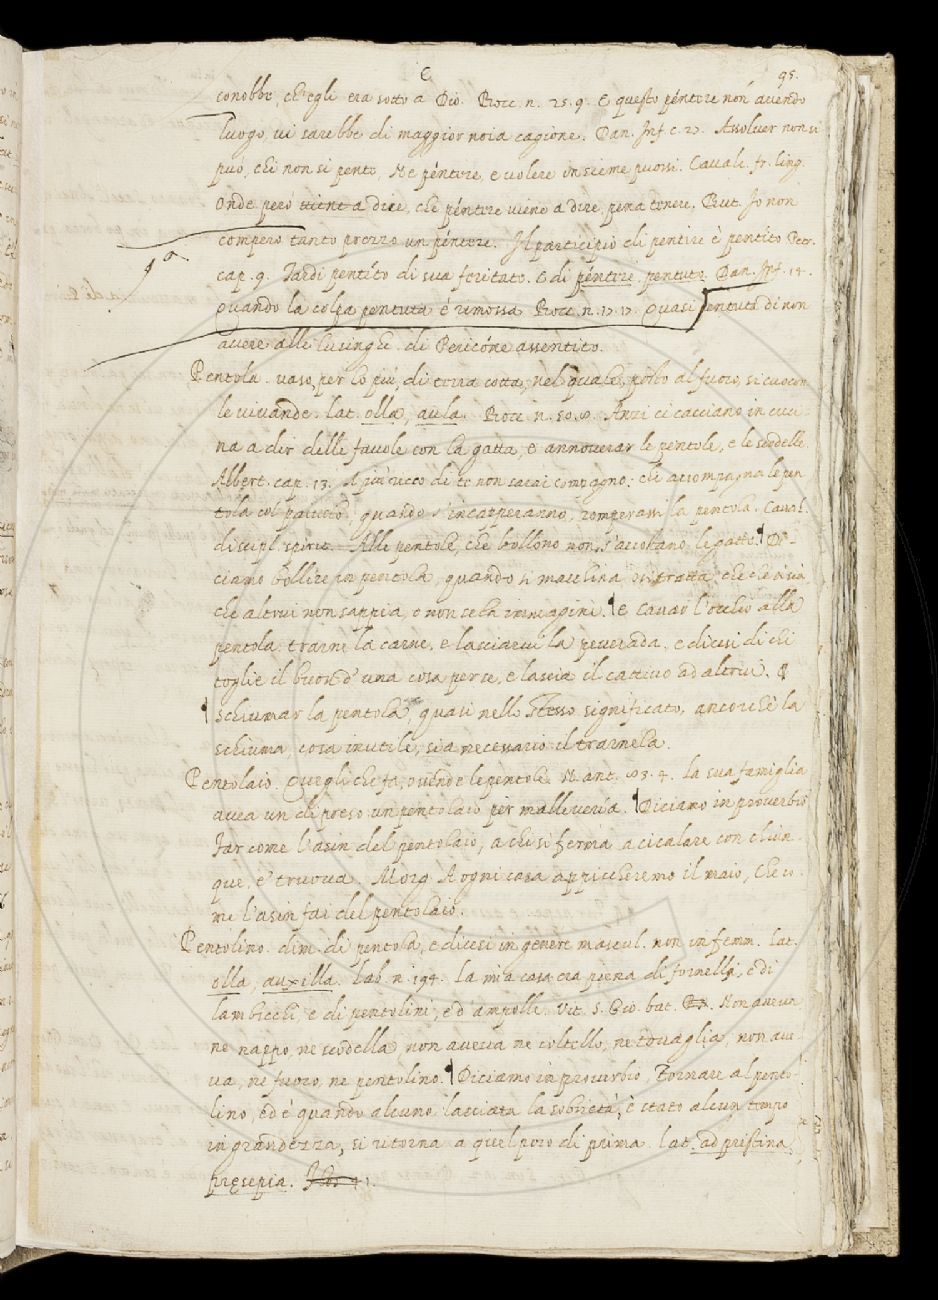 E
95.
conobbe, ch'egli era sotto a Dio. Bocc. n. 25. 9. E questo péntere non avendo
luogo, vi sarebbe di maggior noia cagione. Dan. Inf. c. 27. Assolver non si
può, chi non si pente, Ne péntere, e volere insieme puossi. Cavalc. fr. ling.
Onde però viene a dire, che péntere viene a dire, pena tenere. But. Io non
compero tanto prezzo un péntere. Il participio di pentire è pentito Petr.
cap. 9. Tardi pentíto di sua feritate. E di péntere, pentuto. Dan. Inf. 14.
1ª
Quando la colpa pentuta è rimossa Bocc. n. 17. 17. Quasi pentuta di non
avere alle lusinghe di Pericóne assentito.
Pentola. vaso, per lo più, di terra cotta, nel quale, posto al fuoco, si cuocon
le vivande. lat. olla, aula. Bocc. n. 50. 8. Anzi ci cacciano in cuci-
na a dir delle favole con la gatta, e annoverar le pentole, e le scodelle
Albert. cap. 13. A più ricco di te non sarai compagno: chi accompagna la pen
tola col paiuolo? quando s'incapperanno, romperassi la pentola. Caval.
discipl. spirit. Alle pentole, che bollono non s'accostano le gatte. Di-
ciamo bollire in pentola, quando si macchina, o si tratta che che si sia
che altrui non sappia, e non se la immagini. E cavar l'occhio alla
pentola: trarne la carne, e lasciarvi la peverada, e dicesi di chi
toglie il buon d'una cosa per se, e lascia il cattivo ad altrui.
Schiumar la pentola, quasi nello stesso significato, ancorchè la
schiuma, cosa inutile, sia necessario il trarnela.
Pentolaio. Quegli che fa, o vende le pentole. N. ant. 83. 4. La sua famiglia
avea un dì preso un pentolaio per malleveria. Diciamo in proverbio
Far come l'asin del pentolaio, a chi si ferma a cicalare con chiun-
que, e' truova. Morg. A ogni casa appiccheremo il maio, Che co-
me l'asin fai del pentolaio.
Pentolino. dim. di pentola, e dicesi in genere mascul. non in femm. lat.
olla, auxilla. Lab. n. 194. La mia casa era piena di fornelli, e di
lambicchi, e di pentolini, e d'ampolle. Vit. S. Gio. bat. Non aveva
ne nappo, ne scodella, non aveva ne coltello, ne tovaglia, non ave-
va, ne fuoco, ne pentolino. Diciamo in proverbio, Tornare al pento-
lino, ed è quando alcuno, lasciata la sobrietà, è stato alcun tempo
in grandezza, si ritorna a quel poco di prima. lat. ad pristina
præsepia.